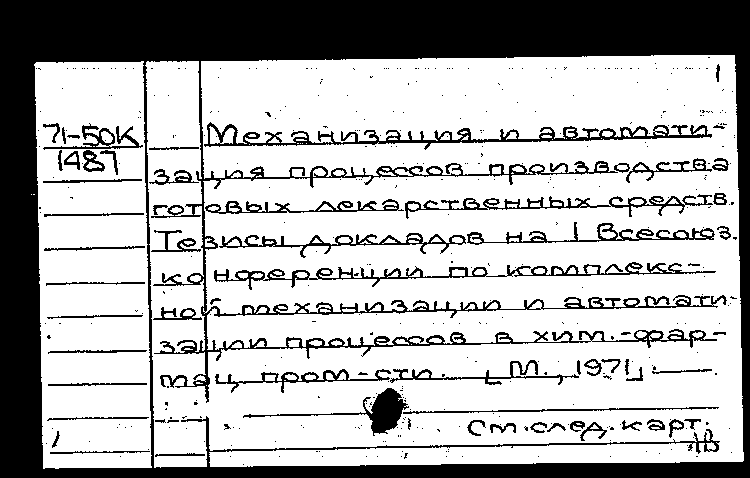 1
71-50К Механизация и автомати-
1487
зация процессов производства
готовых лекарственных средств.
Тезисы докладов на I Всесоюз.
конференции по комплекс-
ной механизации и автомати-
зации процессов в хим.-фар-
мац. пром-сти. [М., 1971].—
См.след.карт.